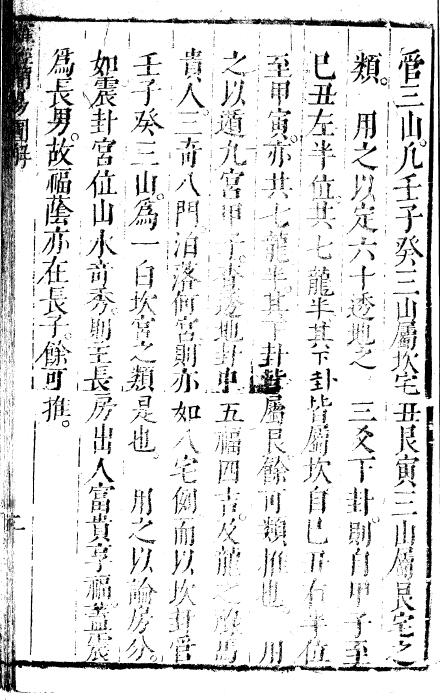 管三山。凡壬子癸三山屬坎宅丑艮寅三山屬艮宅之
類。用之以定六十透地之 三爻下卦。則自甲子至
己丑左半位。共七龍半其下卦皆屬坎自己丑右半位
至甲寅。亦共七龍半。其下卦皆屬艮餘可類推也。用
之以遁九宮甲子。查透地卦中五福四吉。及龍之祿馬
貴人。三奇八門泊落何宮則亦如八宅例而以坎卦管
壬子癸三山。爲一白坎宮之類是也。用之以論房分。
如震卦宮位山水奇秀。則主長房出人富貴享福蓋震
爲長男。故福蔭亦在長子餘可推。
圖解